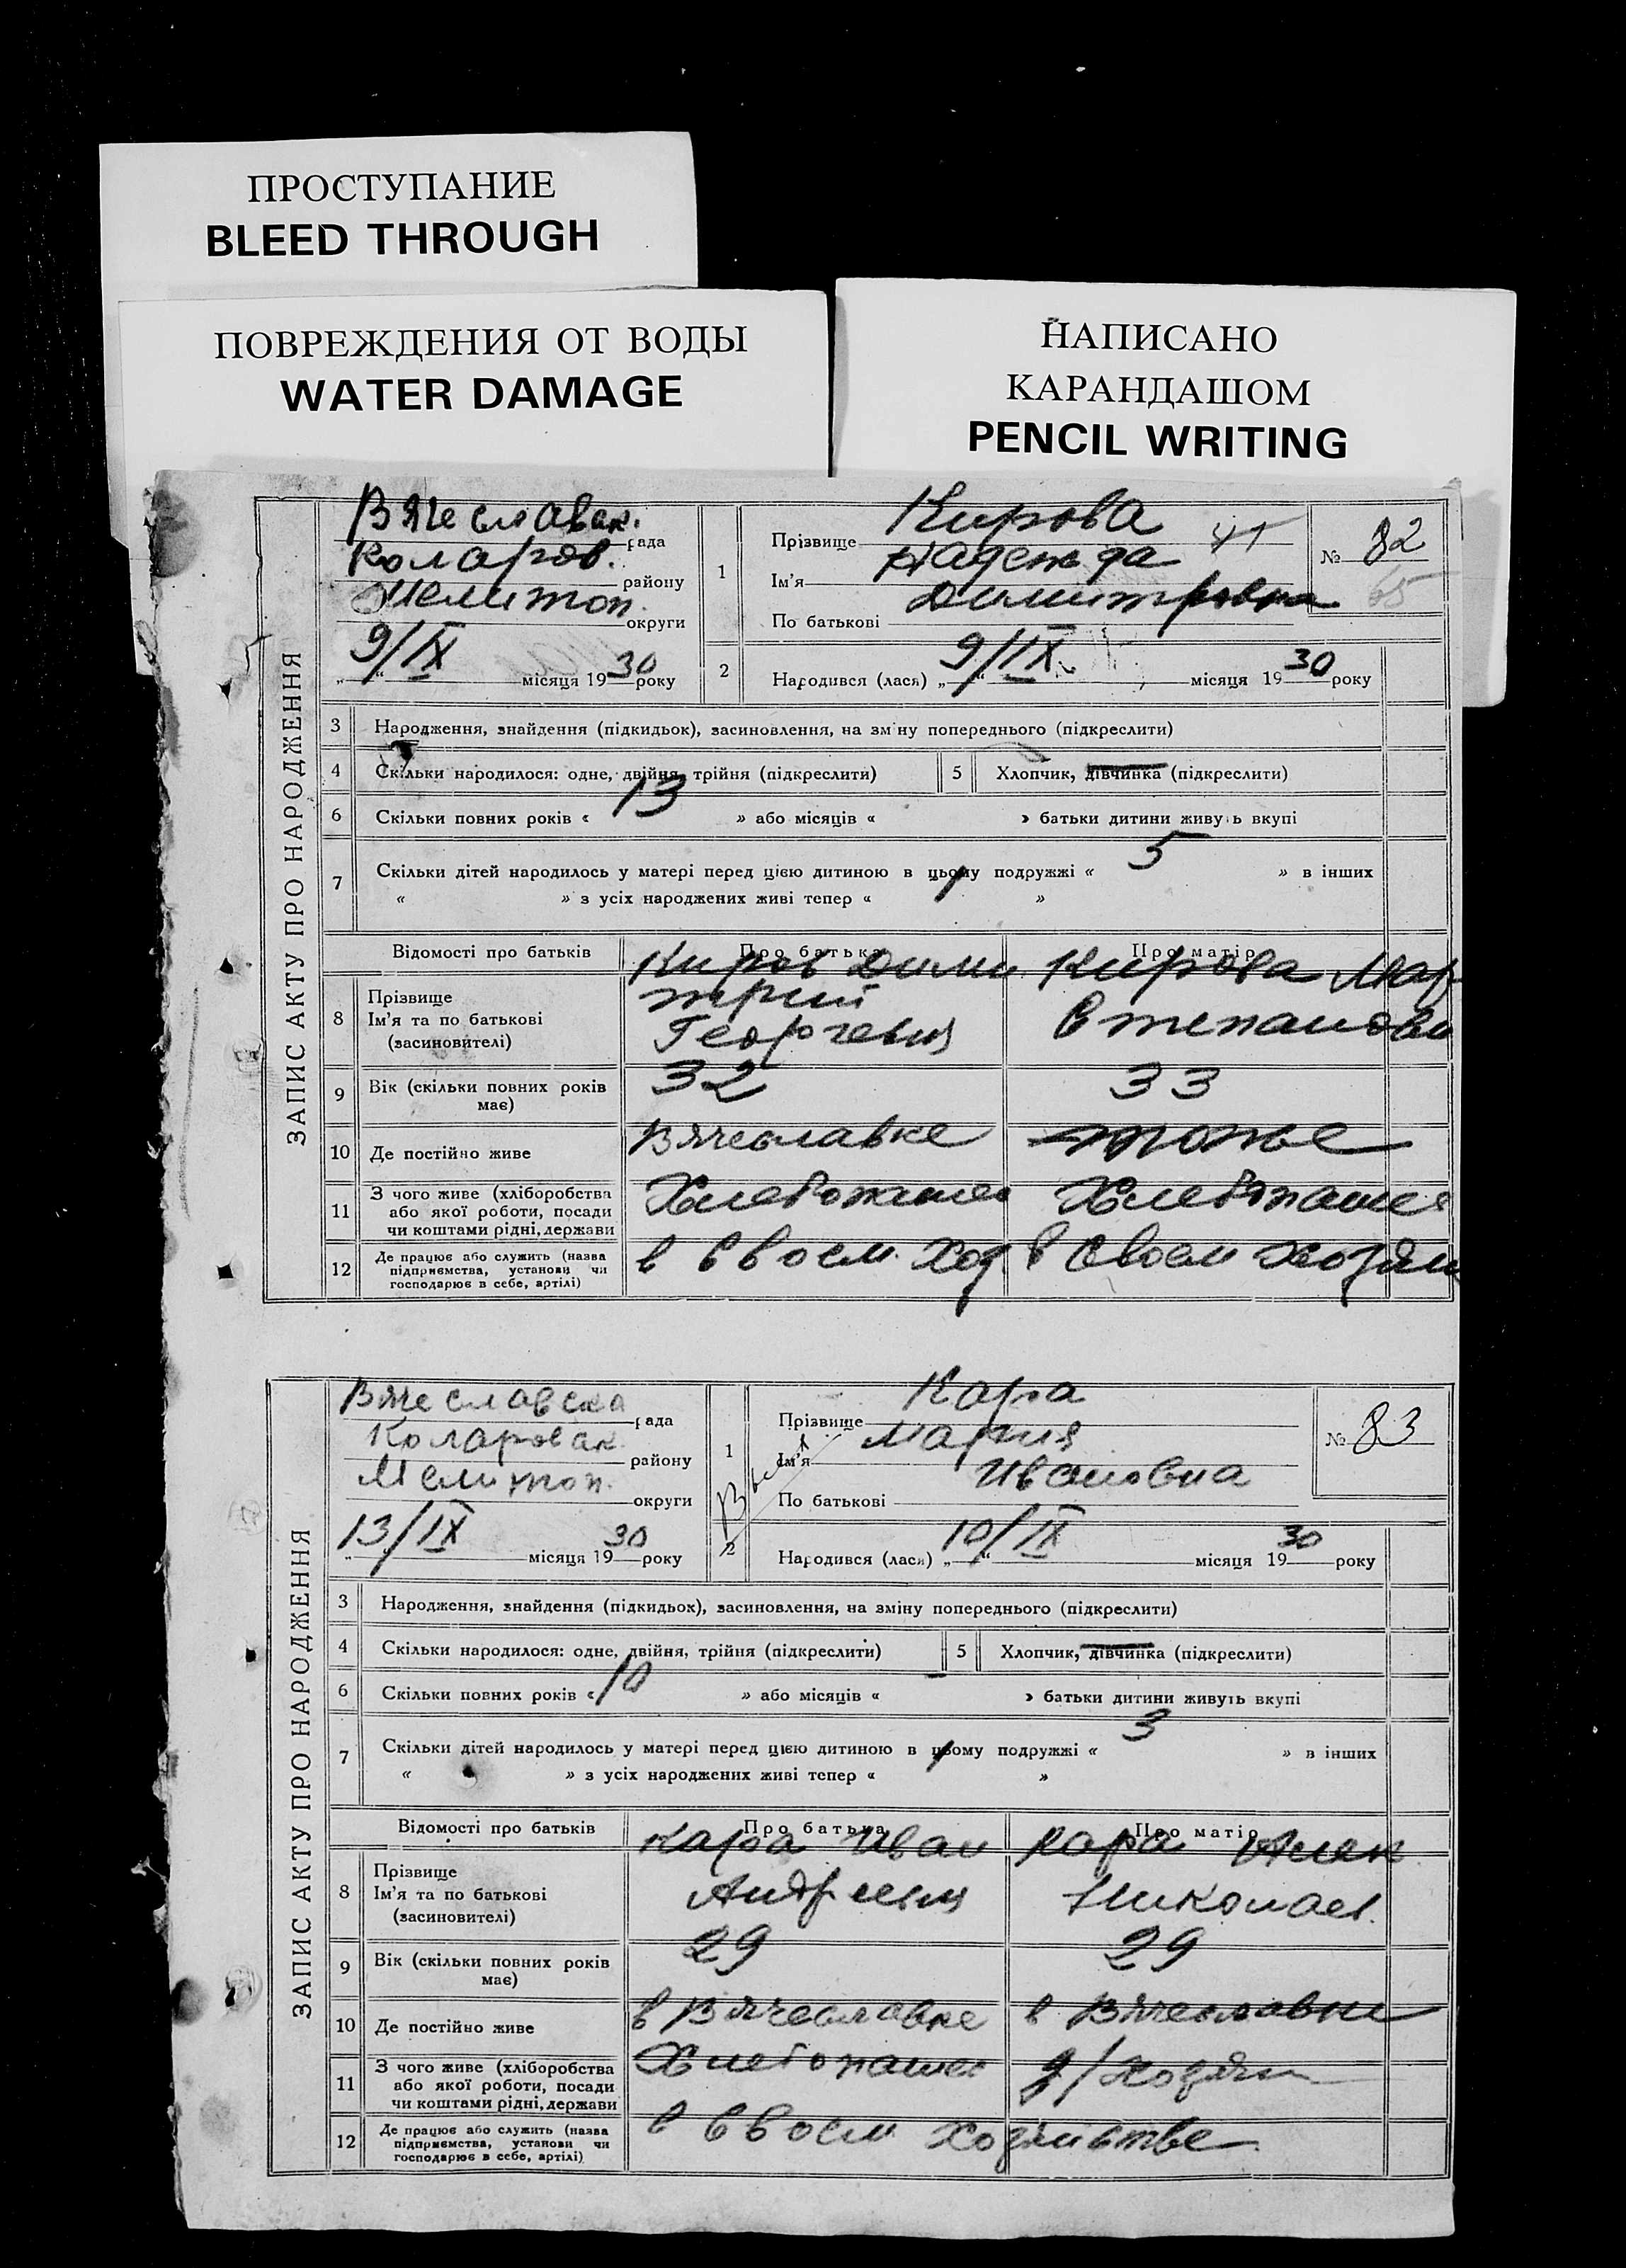 ПРОСТУПАНИЕ
BLEED THROUGH
ПОВРЕЖДЕНИЯ ОТ ВОДЫ
WATER DAMAGE
НАПИСАНО
КАРАНДАШОМ
PENCIL WRITING
ЗАПИС АКТУ ПРО НАРОДЖЕННЯ
Вячеславск. рада
Коларов. району
Мелитоп. округи
9/IX місяця 1930 року
1 Прізвище Кирова
Ім'я Надежда
По батькові Димитровна
41
№ 82
65
2 Народився (лася) „9/IX“ місяця 1930 року
3 Народження, знайдення (підкидьок), засиновлення, на зміну попереднього (підкреслити)
4 Скільки народилося: одне, двійня, трійня (підкреслити)
5 Хлопчик, дівчинка (підкреслити)
6 Скільки повних років « 13 » або місяців « » батьки дитини живуть вкупі
7 Скільки дітей народилось у матері перед цією дитиною в цьому подружжі « 5 » в інших
« » з усіх народжених живі тепер « »
Відомості про батьків Про батька Про матір
8 Прізвище
Ім'я та по батькові
(засиновителі)
Киров Дими
трий
Георгиевич
Кирова Мар
Степановн
9 Вік (скільки повних років має) 32 33
10 Де постійно живе Вячеславке тоже
11 З чого живе (хліборобства
або якої роботи, посади
чи коштами рідні, держави
Хлебопашец Хлебопашес
12 Де працює або служить (назва
підприємства, установи чи
господарює в себе, артілі)
в своем Хоз. в своем хозяй
ЗАПИС АКТУ ПРО НАРОДЖЕННЯ
Вячеславска рада
Коларовск. району
Мелитоп. округи
13/IX місяця 1930 року
1 Прізвище Кара
Ім'я Мария
По батькові Ивановна
№ 83
2 Народився (лася) „10/IX“ місяця 1930 року
3 Народження, знайдення (підкидьох), засиновлення, на зміну попереднього (підкреслити)
4 Скільки народилося: одне, двійня, трійня (підкреслити)
5 Хлопчик, дівчинка (підкреслити)
6 Скільки повних років « 10 » або місяців « – » батьки дитини живуть вкупі
7 Скільки дітей народилось у матері перед цією дитиною в цьому подружжі « 3 » в інших
« » з усіх народжених живі тепер « »
Відомості про батьків Про батька Про матір
8 Прізвище
Ім'я та по батькові
(засиновителі)
Кара Иван
Андреевич
Кара Алек
Николаев.
9 Вік (скільки повних років має) 29 29
10 Де постійно живе в Вячеславке в Вячеславке
11 З чого живе (хліборобства
або якої роботи, посади
чи коштами рідні, держави
Хлебопашес д/Хозяй
12 Де працює або служить (назва
підприємства, установи чи
господарює в себе, артілі)
в своем хозяйстве